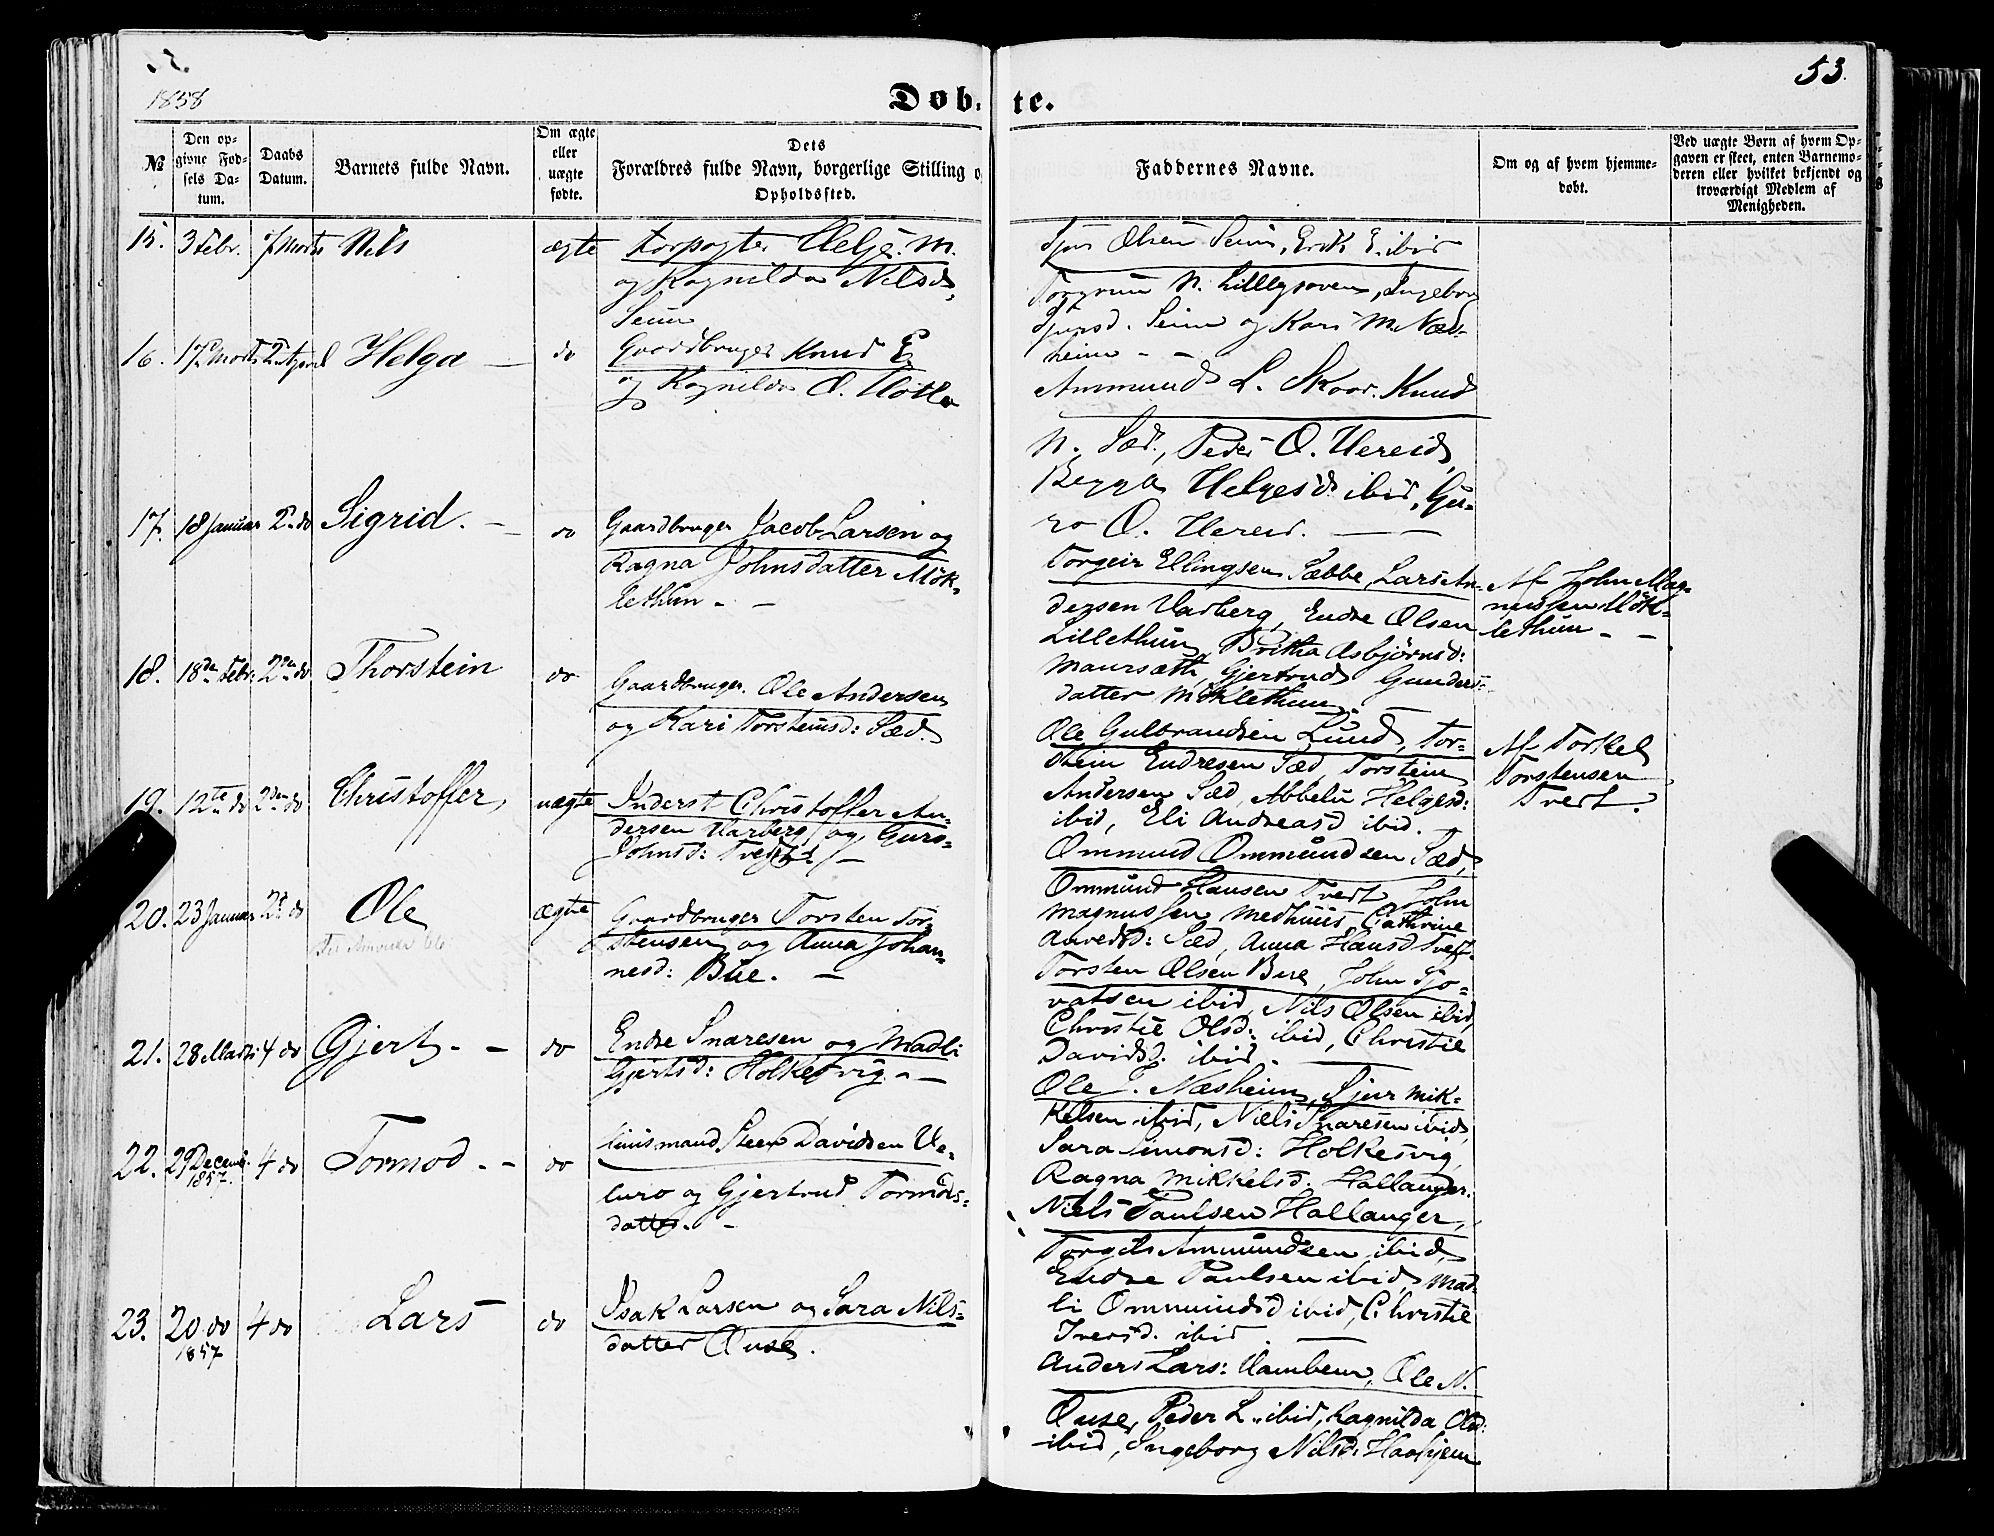 1858
53.
Døb-
te.
№
Den op-
givne Fød-
sels Da-
tum.
Daabs
Datum.
Barnets fulde Navn.
Om ægte
eller
uægte
fødte.
Dets
Forældres fulde Navn, borgerlige Stilling o
Opholdssted.
Faddernes Navne.
Om og af hvem hjemme-
døbt.
Ved uægte Børn af hvem Op-
gaven er skeet, enten Barnemo-
deren eller hvilket bekjendt og
troværdigt Medlem af
Menigheden.
15. 3 Febr. 7 Marts Nils ægte Helje. M.
og Ragnilda Nilsd.
Seim
Sjur Olsen Seim, Erik E. ibid
Torgrim N. Lillegraven, Ingeborg
Sjursd. Seim og Kari M. Næs-
heim - -
16. 17 Marts 2 April Helga - do Gaardbruger Knud E
og Ragnilda O.
Ammund L. Skaar. Knud
N. Sæd, Peder O. Hereid,
Begga Helgesd. ibid, Gu-
ro O. Hereid. -
17. 18 Januar 2 do Sigrid. - do Gaardbruger Jacob Larsen og
Ragna Johnsdatter Møk-
lethun - -
Torgeir Ellingsen Sæbbe, Lars An-
dersen Varberg, Endre Olsen
Lillethun, Britha Asbjørnsd:
Maursæth, Gjertrud Gunders-
datter Møklethun.
Af John Mag-
nussen Møk-
lethun - -
18. 18de Febr: 2den do Thorstein do Gaardbruger. Ole Andersen
og Kari Torsteinsd: Sæd.
Ole Gulbrandsen Lund, Tor-
stein Endresen Sæd, Torstein
Andersen Sæd, Abbelu Helgesd:
ibid, Eli Andreasd ibid.
Af Torkel
Torstensen
Tveit.
19. 12te do 2den do Christoffer, uægte Inderst Christoffer An-
dersen Varberg og Guro
Johnsd: Tveit -
Ommund Ommundsen Sæd,
Ommund Hansen Tveit, John
Magnussen Medhuus, Cathrine
Sæd, Anna Hansd Tveit.
20. 23 Januar 2 do Ole ægte Gaardbruger Torsten Tor-
stensen og Anna Johan-
nesd: Bue. -
Torsten Olsen Bue, John Sjo-
vatsen ibid, Nils Olsen ibid,
Christie Olsd: ibid, Christie
Davidsd. ibid. -
21. 28 Marts 4 do Gjert - - do Endre Snaresen og Madli
Gjertsd: Holkesvig - -
Ole T. Næsheim, Sjur Mik-
kelsen ibid, Niels Snaresen ibid,
Sara Simonsd: Holkesvig,
Ragna Mikkelsd. Hallanger.
22. 29 Decemb. 1857. 4 do Tormod. - do Huusmand Steen Davidsen Ve-
luro og Gjertrud Tormods-
datter. -
Niels Paulsen Hallanger,
Torgils Ammundsen ibid,
Endre Paulsen ibid, Mad-
li Ommundsd ibid, Christie
Iversd. ibid. -
23. 20 do 1857 4 do Lars do Isak Larsen og Sara Nils-
datter Quse.
Anders Lars: Vambem, Ole N.
Quse, Peder L. ibid, Ragnilda Olsd:
ibid, Ingeborg Nilsd: Haahjem